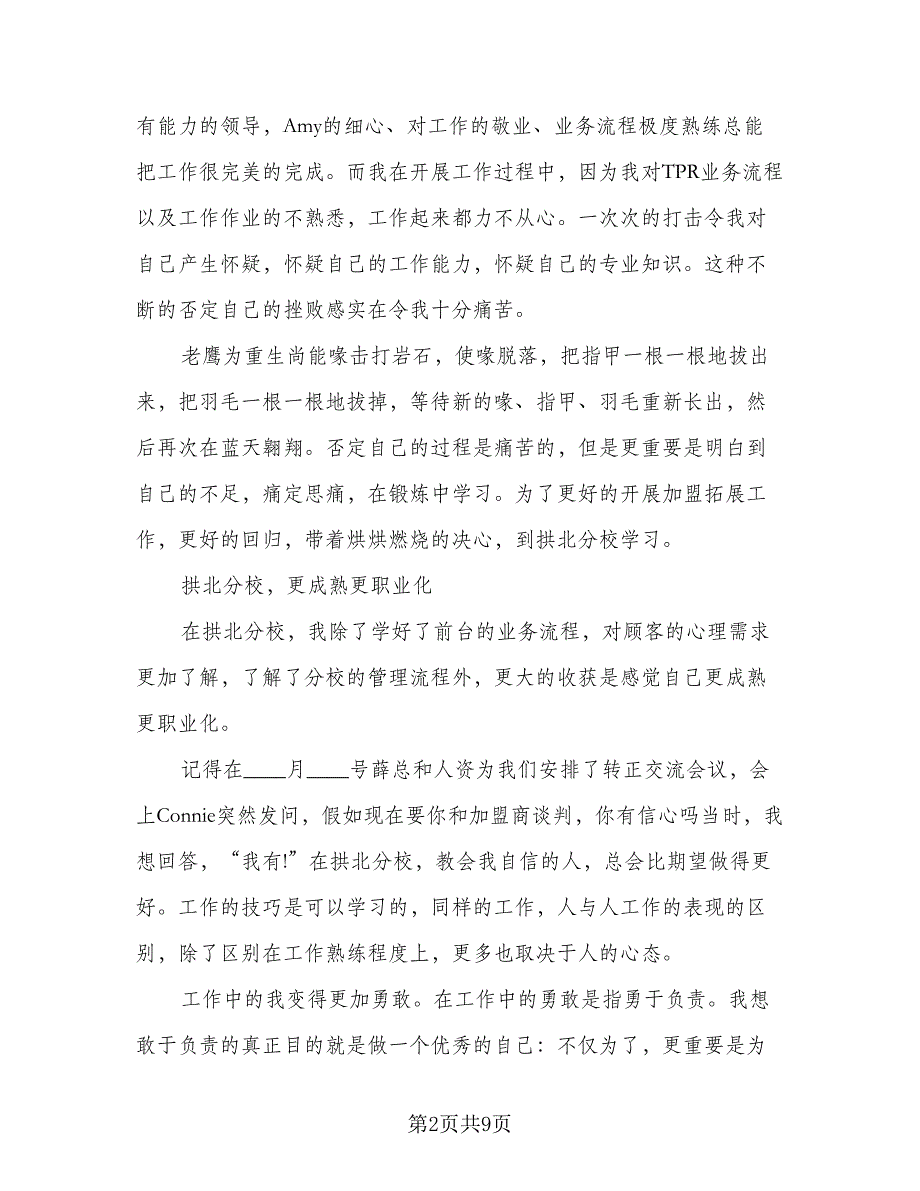 有能力的领导，Amy的细心、对工作的敬业、业务流程极度熟练总能
把工作很完美的完成。而我在开展工作过程中，因为我对TPR业务流程
以及工作作业的不熟悉，工作起来都力不从心。一次次的打击令我对
自己产生怀疑，怀疑自己的工作能力，怀疑自己的专业知识。这种不
断的否定自己的挫败感实在令我十分痛苦。
老鹰为重生尚能喙击打岩石，使喙脱落，把指甲一根一根地拔出
来，把羽毛一根一根地拔掉，等待新的喙、指甲、羽毛重新长出，然
后再次在蓝天翱翔。否定自己的过程是痛苦的，但是更重要是明白到
自己的不足，痛定思痛，在锻炼中学习。为了更好的开展加盟拓展工
作，更好的回归，带着烘烘燃烧的决心，到拱北分校学习。
拱北分校，更成熟更职业化
在拱北分校，我除了学好了前台的业务流程，对顾客的心理需求
更加了解，了解了分校的管理流程外，更大的收获是感觉自己更成熟
更职业化。
记得在____月____号薛总和人资为我们安排了转正交流会议，会
上Connie突然发问，假如现在要你和加盟商谈判，你有信心吗当时，我
想回答，“我有!”在拱北分校，教会我自信的人，总会比期望做得更
好。工作的技巧是可以学习的，同样的工作，人与人工作的表现的区
别，除了区别在工作熟练程度上，更多也取决于人的心态。
工作中的我变得更加勇敢。在工作中的勇敢是指勇于负责。我想
敢于负责的真正目的就是做一个优秀的自己：不仅为了，更重要是为
第2页共9页